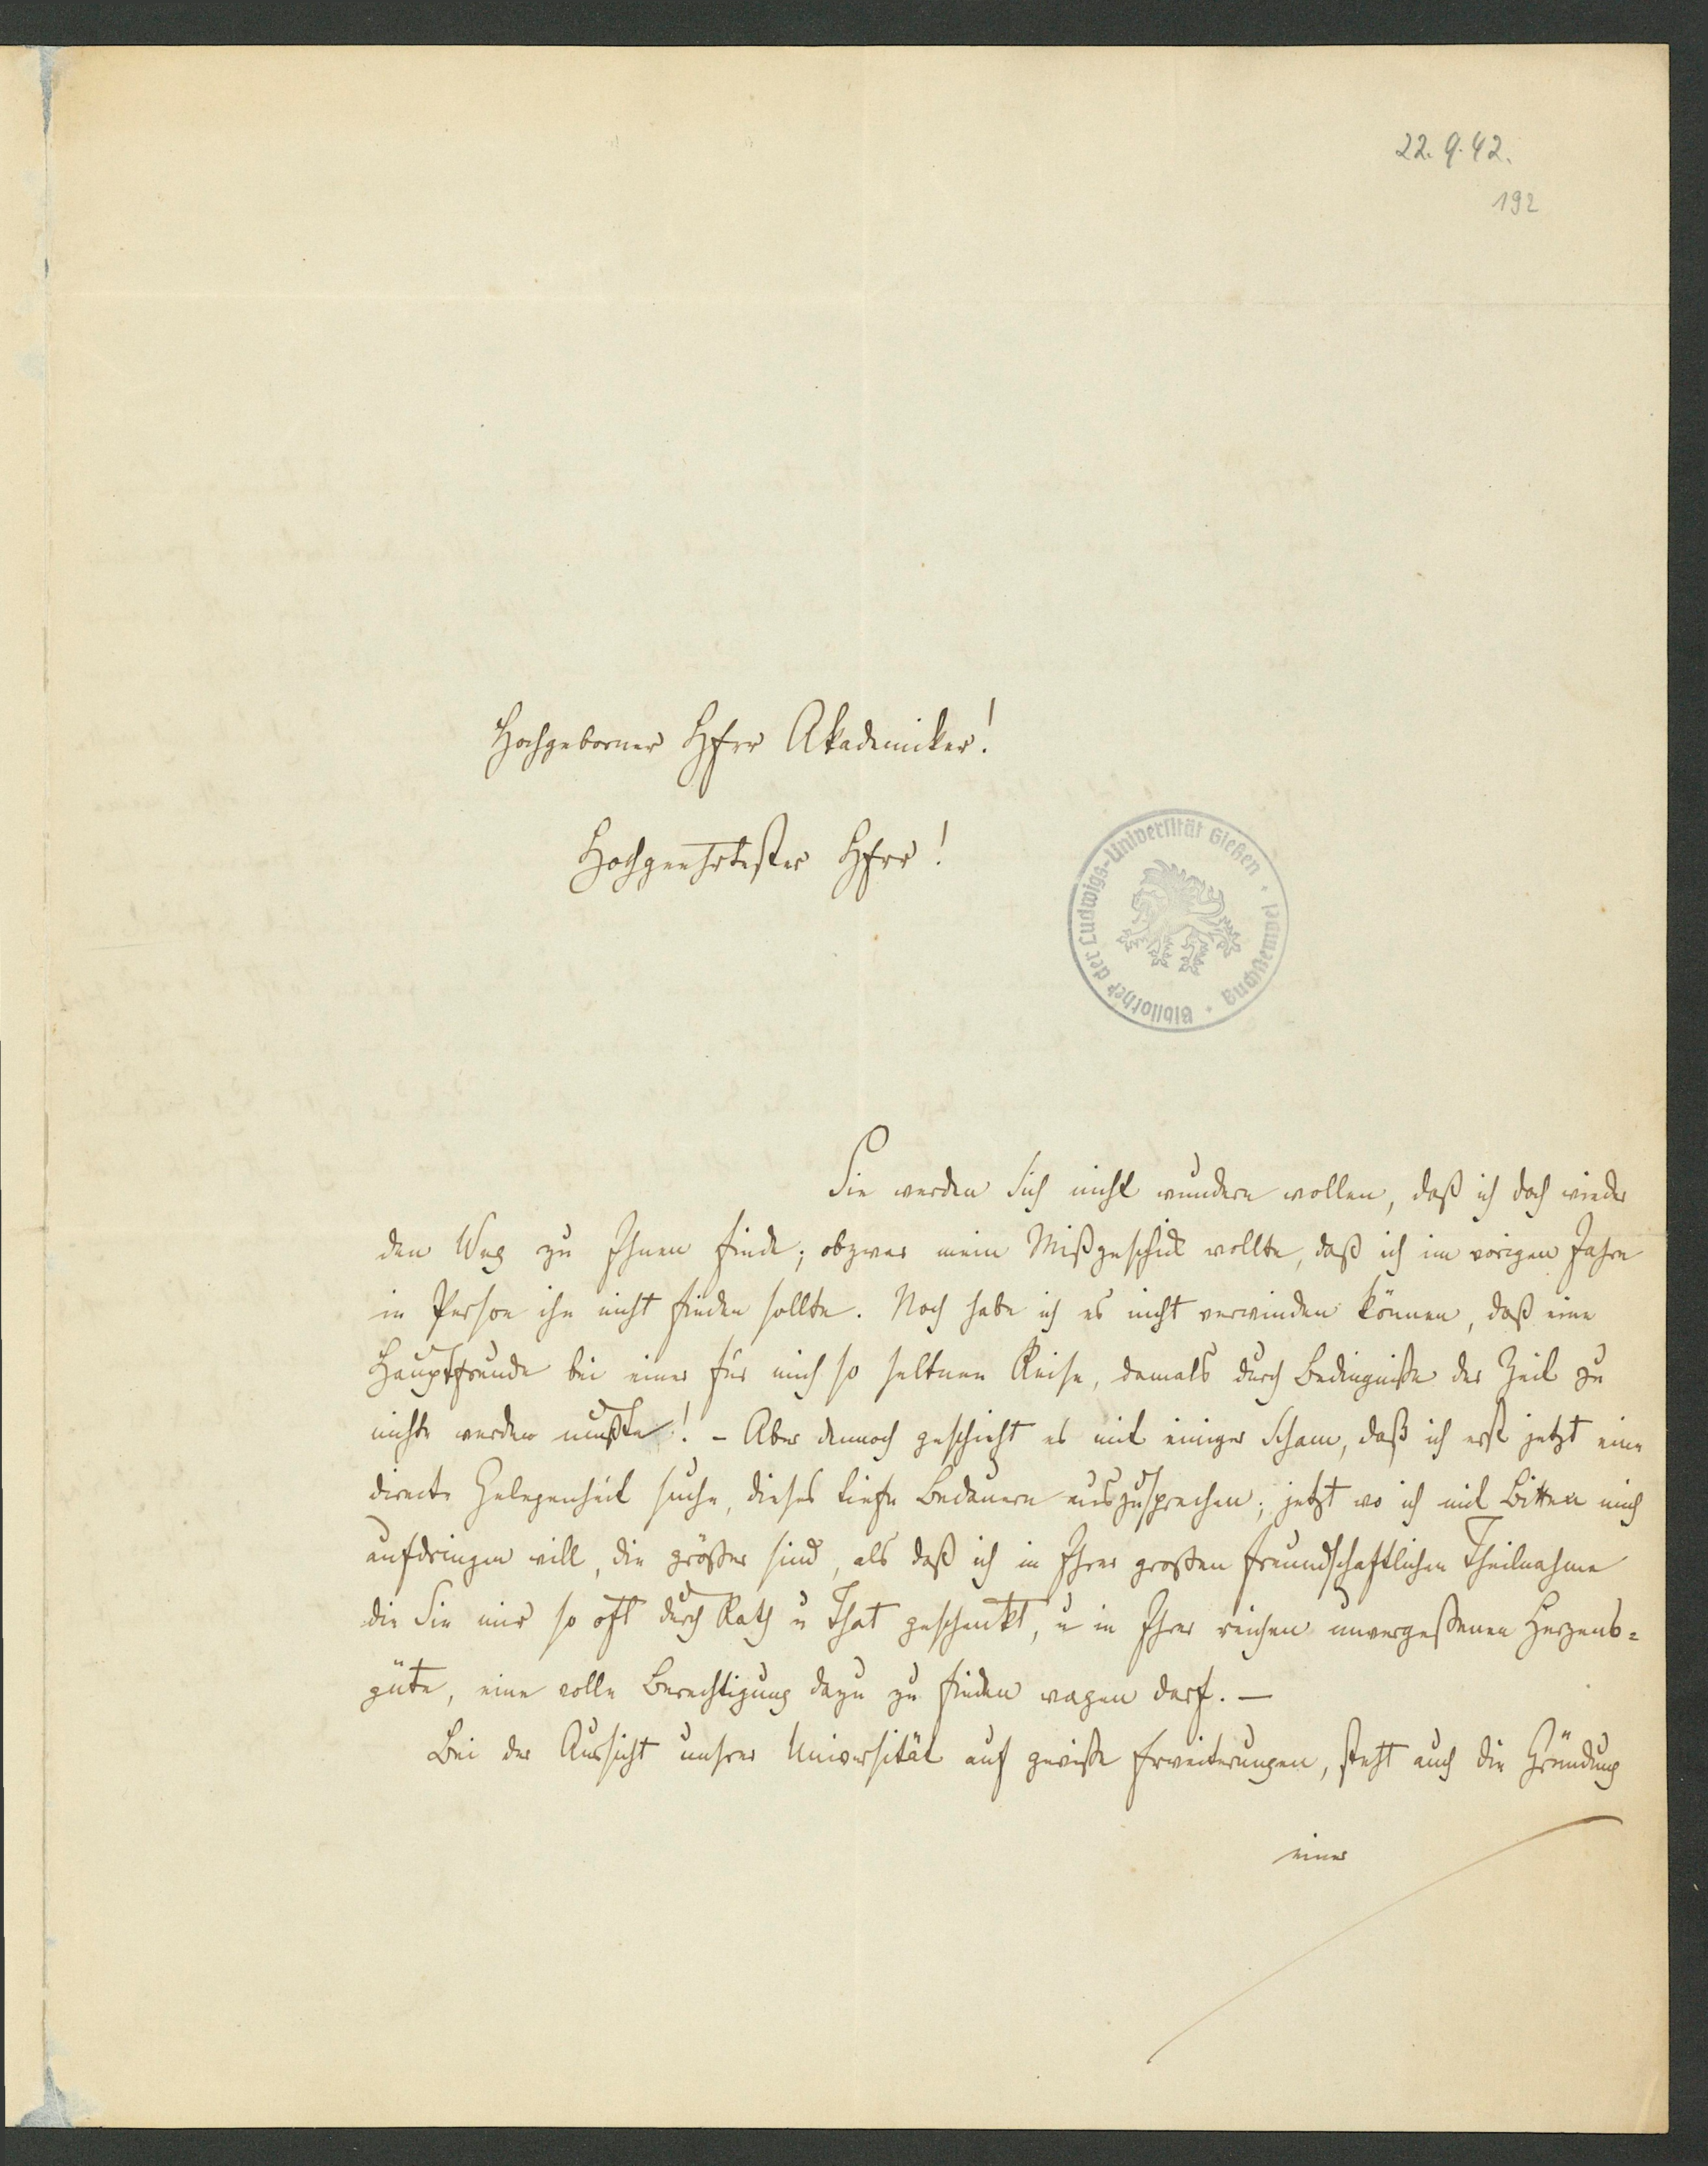 22. 9. 42.
192
Hochgeborner Herr Akademiker!
Hochgeehrtester Herr!
Bibliothek der Ludwigs-Universität Gießen · Buchstempel ·
Sie werden Sich nicht wundern wollen, daß ich doch wieder
den Weg zu Ihnen finde; obzwar mein Mißgeschick wollte, daß ich im vorigen Jahre
in Person ihn nicht finden sollte. Noch habe ich es nicht verwinden können, daß eine
Hauptfreude bei einer für mich so seltnen Reise, damals durch Bedingniße der Zeit zu
nichte werden mußte! – Aber dennoch geschieht es mit einiger Scham, daß ich erst jetzt eine
directe Gelegenheit suche, dieses tiefe Bedauern auszusprechen; jetzt wo ich mit Bitten mich
aufdringen will, die größer sind, als daß ich in Ihrer großen freundschaftlichen Theilnahme
die Sie mir so oft durch Rath u That geschenkt, u in Ihrer reichen unvergeßenen Herzens=
güte, eine volle Berechtigung dazu zu finden wagen darf. —
Bei der Aussicht unsrer Universität auf gewiße Erweiterungen, steht auch die Gründung
einer